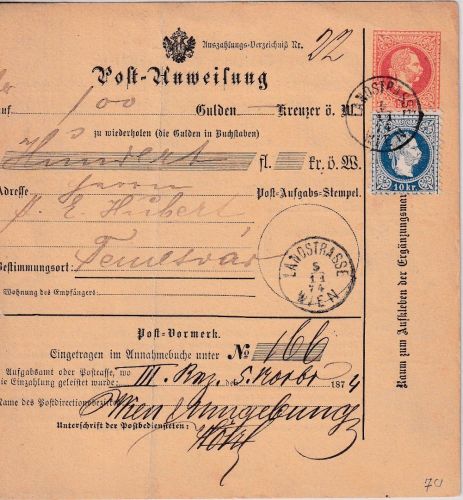 Auszahlungs-Verzeichniß Nr. 22
Post-Anweisung
auf 100 Gulden — Kreuzer ö. W.
zu wiederholen (die Gulden in Buchstaben)
Hundert fl. — kr. ö. W.
Adresse Herrn Post-Aufgabs-Stempel.
E. Hubert,
Bestimmungsort: Temesvár
Wohnung des Empfängers:
LANDSTRASSE
5
11
74
WIEN
LANDSTRASSE
WIEN
10 kr.
Raum zum Aufkleben der Ergänzungsmar
Post-Vormerk.
Eingetragen im Annahmebuche unter № 166
Aufgabsamt oder Postcasse, wo
die Einzahlung geleistet wurde: III. den 5. Novbr 1874
Name des Postdirectionsbezirkes: Wien Umgebung
Unterschrift der Postbediensteten:
70